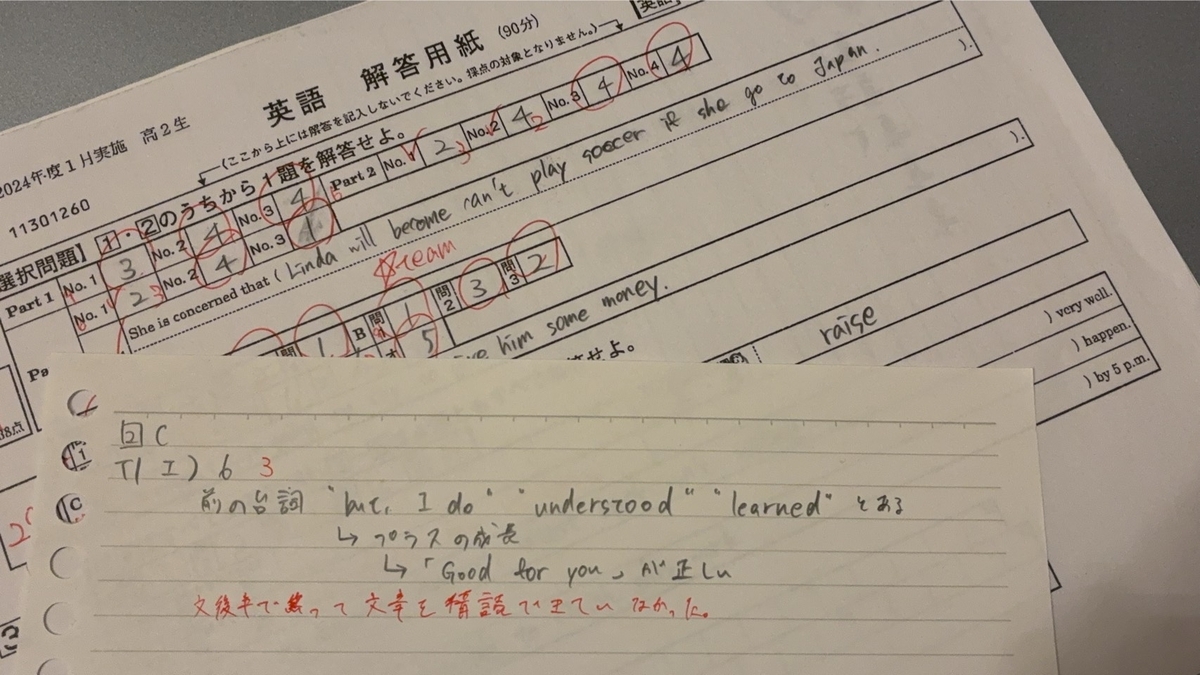 英語 解答用紙 (90分)
(ここから上には解答を記入しないでください。採点の対象となりません。)
2024年度1月実施 高2生
11301260
選択問題】1・2のうちから1題を解答せよ。
Part 1 No. 1 3 No. 2 4 No. 3 4 Part 2 No. 1 2 3 No. 2 4 2 No. 3 4 No. 4 4
No. 1 2 3 No. 2 4 No. 3 1
She is concerned that ( Linda will become can't play soccer if she go to Japan. ).
team
1 B 問1 1 問2 3 問3 2
5
him some money. ).
答せよ。
raise
) very well.
) happen.
) by 5 p.m.
38点
2 C
T( エ ) 6 3
前の台詞 "but, I do" "understood" "learned" とある
↳ プラスの成長
↳ 「Good for you」が正しい
文後半で焦って文章を精読できていなかった。